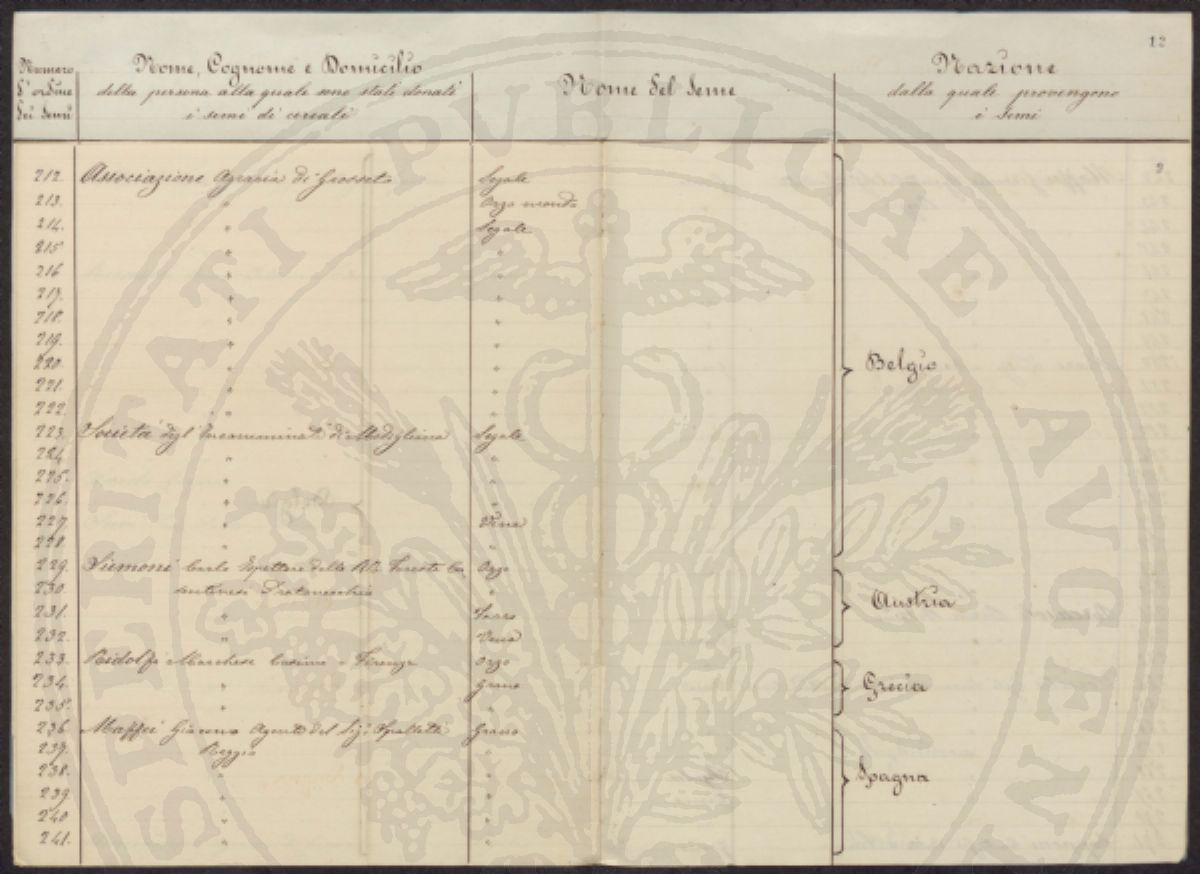 12
Numero d'ordine dei semi
Nome, Cognome e Domicilio
della persona alla quale sono stati donati
i semi di cereali
Nome del Seme
Nazione
dalla quale provengono
i Semi
212. Associazione Agraria di Grosseto Segale
213. " Orzo mondo
214. " Segale
215 " "
216 " "
217. " "
218. " "
219. " "
220. " "
221. " "
222. " "
Belgio
223. Società degl' Incamminati di Modigliana Segale
224. " "
225. " "
226. " "
227. " Vena
228. " "
229. Siemoni Carlo Ispettore delle RR. Foreste Ca Orzo
230. sentinesi Pratovecchio "
231. " Farro
232. " Vena
Austria
233. Ridolfi Marchese Cosimo - Firenze Orzo
234. " Grano
235. " "
Grecia
236. Maffei Giacomo Agente del Sig. Spalletti Grano
237. Reggio "
238. " "
239 " "
240 " "
241. " "
Spagna
SERITATI PUBLICAE AUGEN